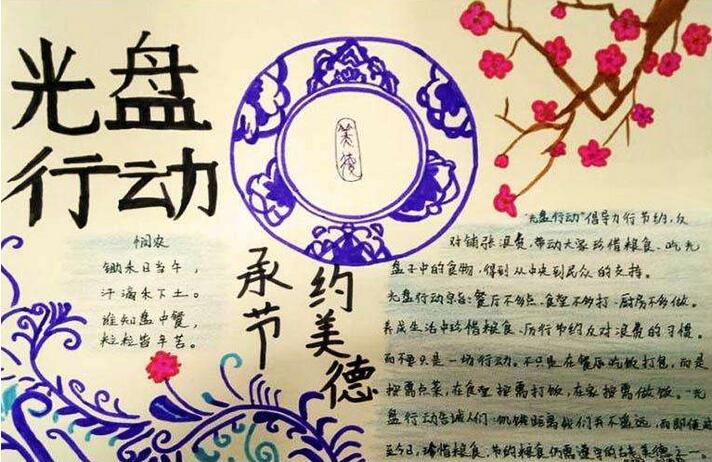 光盘
行动
美德
悯农
锄禾日当午，
汗滴禾下土。
谁知盘中餐，
粒粒皆辛苦。
承节
约美德
"光盘行动"倡导力行节约,反
对铺张浪费,带动大家珍惜粮食、吃光
盘子中的食物,得到从中央到民众的支持。
光盘行动宗旨:餐厅不多点、食堂不多打、厨房不多做。
养成生活中珍惜粮食、厉行节约反对浪费的习惯。
而不只是一场行动。不只是在餐厅吃饭打包,而是
按需点菜,在食堂按需打饭,在家按需做饭。光
盘行动告诫人们:饥饿距离我们并不遥远,而即便
至今日,珍惜粮食,节约粮食仍需遵守的古老美德之一。